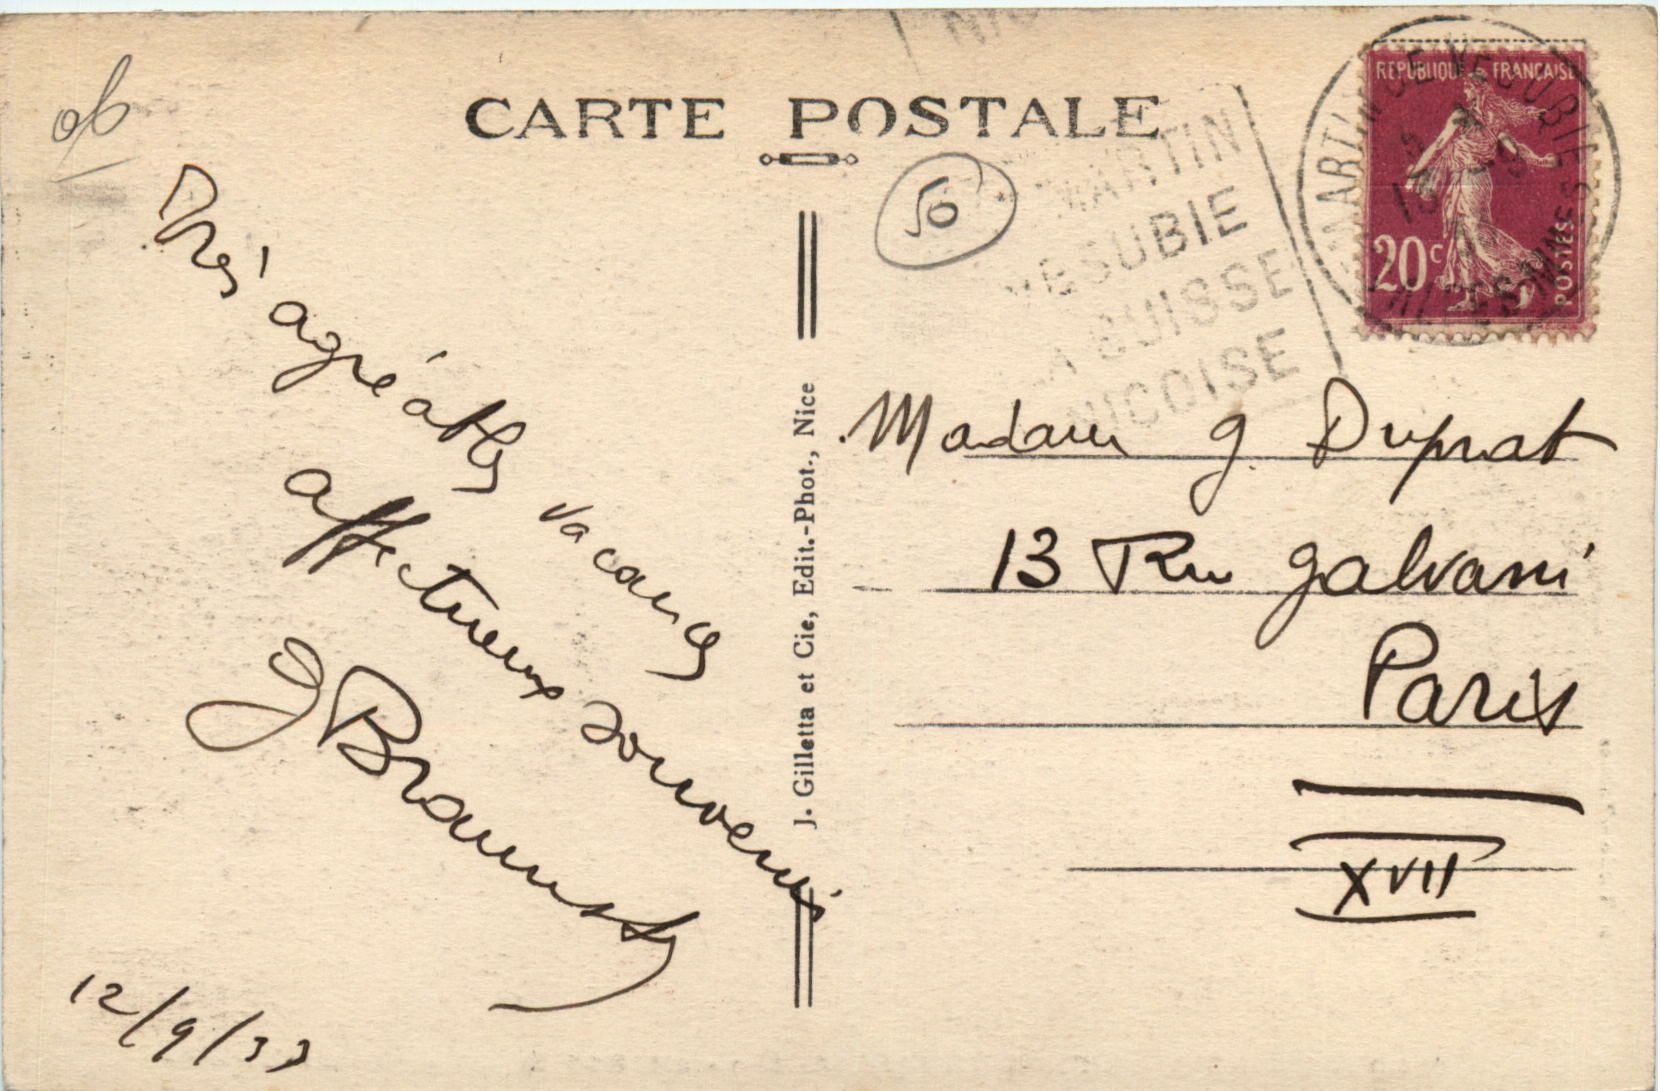 CARTE POSTALE
50
Très agréables vacances
affectueux souvenirs
12/9/33
J. Gilletta et Cie, Edit.-Phot., Nice
MARTIN
VESUBIE
LA SUISSE
NICOISE
REPUBLIQUE FRANÇAISE
20c
POSTES
Madame G. Duprat
13 Rue Galvani
Paris
XVII